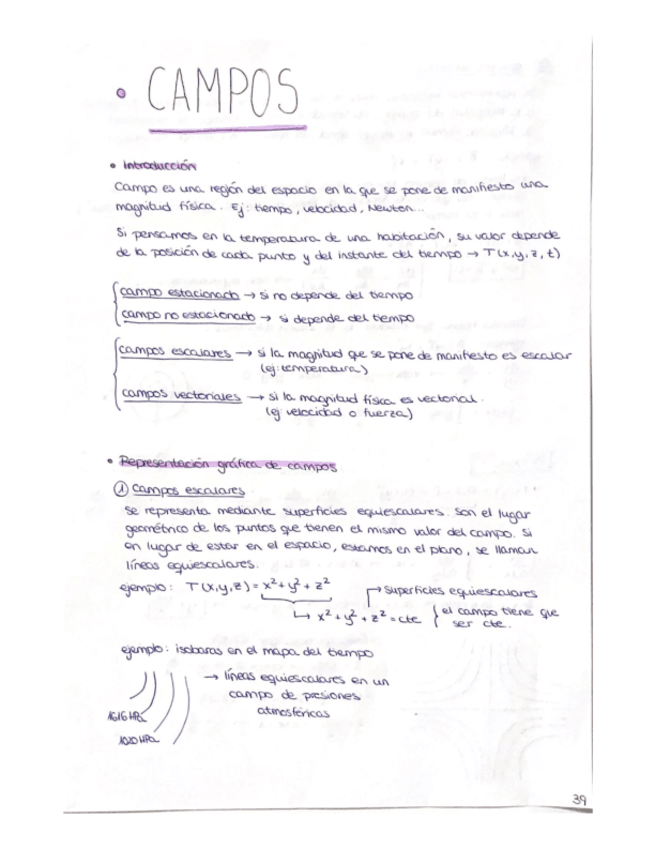 • CAMPOS
• Introducción
Campo es una región del espacio en la que se pone de manifiesto una
magnitud física. Ej: tiempo, velocidad, Newton...
Si pensamos en la temperatura de una habitación, su valor depende
de la posición de cada punto y del instante del tiempo → T(x,y,z,t)
campo estacionado → si no depende del tiempo
campo no estacionado → si depende del tiempo
campos escalares → si la magnitud que se pone de manifiesto es escalar
(ej: temperatura)
campos vectoriales → si la magnitud física es vectorial.
(ej velocidad o fuerza)
• Representación gráfica de campos
① Campos escalares
Se representa mediante superficies equiescalares. Son el lugar
geométrico de los puntos que tienen el mismo valor del campo. Si
en lugar de estar en el espacio, estamos en el plano, se llaman
líneas equiescalares.
ejemplo: T(x,y,z) = x²+y²+z²
→ superficies equiescalares
↳ x²+y²+z² = cte } el campo tiene que
ser cte.
ejemplo: isobaras en el mapa del tiempo
→ líneas equiescalares en un
campo de presiones
atmosféricas
1616 HPa
1020 HPa
39